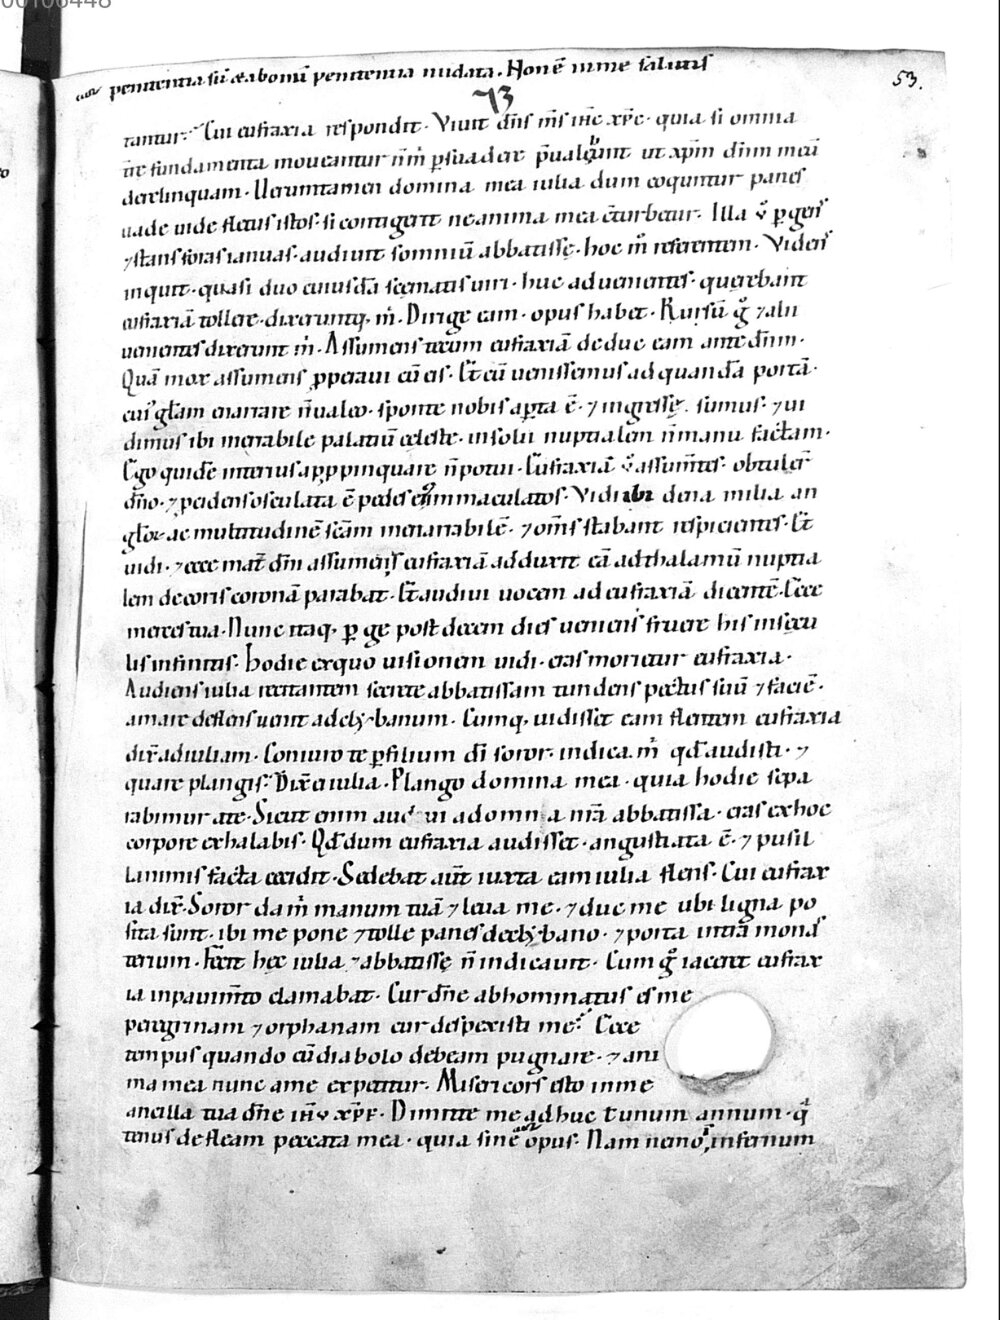 penitentia sū & a bonū penitentia nudata. Non ē in me salutis
53.
73
tantur. Cui eufraxia respondit. Vivit dn̄s m̄s ih̄c xp̄c. quia si omnia
t̄re fundamenta moveantur n̄ m̄ p̱suadere p̄ualebunt ut xp̄m dn̄m meū
derelinquam. Uerumtamen domina mea iulia dum coquntur panes
uade uide fletus istos. si contigerit ne anima mea c̄turbetur. Illa v̊ p̱gens
⁊ stans foras ianuas. audiuit somniū abbatissę. hoc m̊ referentem. Videns
inquit. quasi duo cuiusdā scematis uiri. huc aduenientes. querebant
eufraxiā tollere. dixeruntq; m̊. Dirige eam. opus habet. Rursū g̊ ⁊ alii
uenientes dixerunt m̊. Assumens tecum eufraxiā deduc eam ante dn̄m.
Quā mox assumens ꝓperaui cū eis. Et cū uenissemus ad quandā portā.
cui' gl̄am enarrare n̄ ualeo. sponte nobis ap̱ta ē. ⁊ ingressę sumus. ⁊ ui
dimus ibi mirabile palatiū celeste. in solii nuptialem n̄ manu factam.
Ego quidē interius apꝓpinquare n̄ potui. Eufraxiā v̊ assum̄tes. obtuler̄
dn̄o. ⁊ pcidens osculata ē pedes ei' inmaculatos. Vidi ibi dena milia an
gl̄oꝝ ac multitudinē sc̄am inenarrabilē. ⁊ om̄s stabant respicientes. Et
uidi. ⁊ ecce mat̄ dn̄i assumens eufraxiā adduxit eā ad thalamū nuptia
lem decoris coronā parabat. Et audiui uocem ad eufraxiā dicentē. Ecce
merces tua. Nunc itaq; p̱ge post decem dies veniens fruere his in secu
lis infinitis. Hodie ex quo uisionem uidi. cras morietur eufraxia.
Audiens iulia recitantem secrete abbatissam tundens pectus suū ⁊ faciē.
amare deflens uenit ad clybanum. Cumq; uidisset eam flentem eufraxia
dix̄ ad iuliam. Coniuro te p̱ filium dī soror. indica m̊ qd̄ audisti. ⁊
quare plangis. Dix̄ ei iulia. Plango domina mea. quia hodie sepa
rabimur a te. Sicut enim audiui a domina nr̄a abbatissa. cras ex hoc
corpore exhalabis. Qd̄ dum eufraxia audisset. angustiata ē. ⁊ pusil
lanimis facta cecidit. Sedebat aūt iuxta eam iulia flens. Cui eufrax
ia dix̄. Soror da m̊ manum tuā ⁊ leua me. ⁊ duc me ubi ligna po
sita sunt. ibi me pone ⁊ tolle panes de clybano. ⁊ porta intra monas
terium. Fecit hęc iulia ⁊ abbatissę n̄ indicauit. Cum g̊ iaceret eufrax
ia in pauim̄to clamabat. Cur dn̄e abhominatus es me
peregrinam ⁊ orphanam cur despexisti me. Ecce
tempus quando cū diabolo debeam pugnare. ⁊ ani
ma mea nunc a me expetitur. Misericors esto in me
ancilla tua dn̄e ih̄u xp̄e. Dimitte me adhuc t̄unum annum. q̄
tenus defleam peccata mea. quia sine opus. Nam nemo infernum